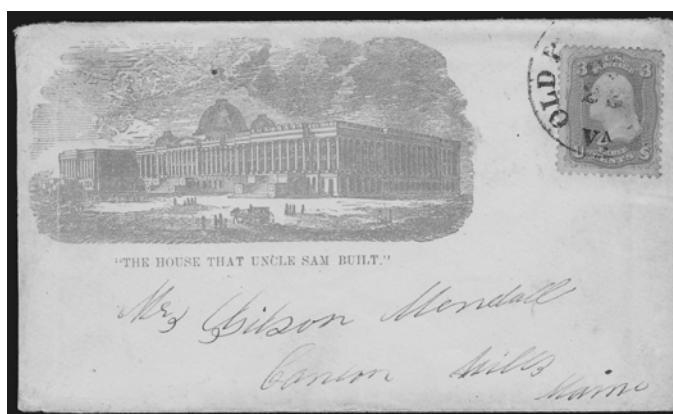 OLD P
VA
3 3
CENTS
"THE HOUSE THAT UNCLE SAM BUILT."
Mrs Gilson Mendall
Canton Mills
Maine